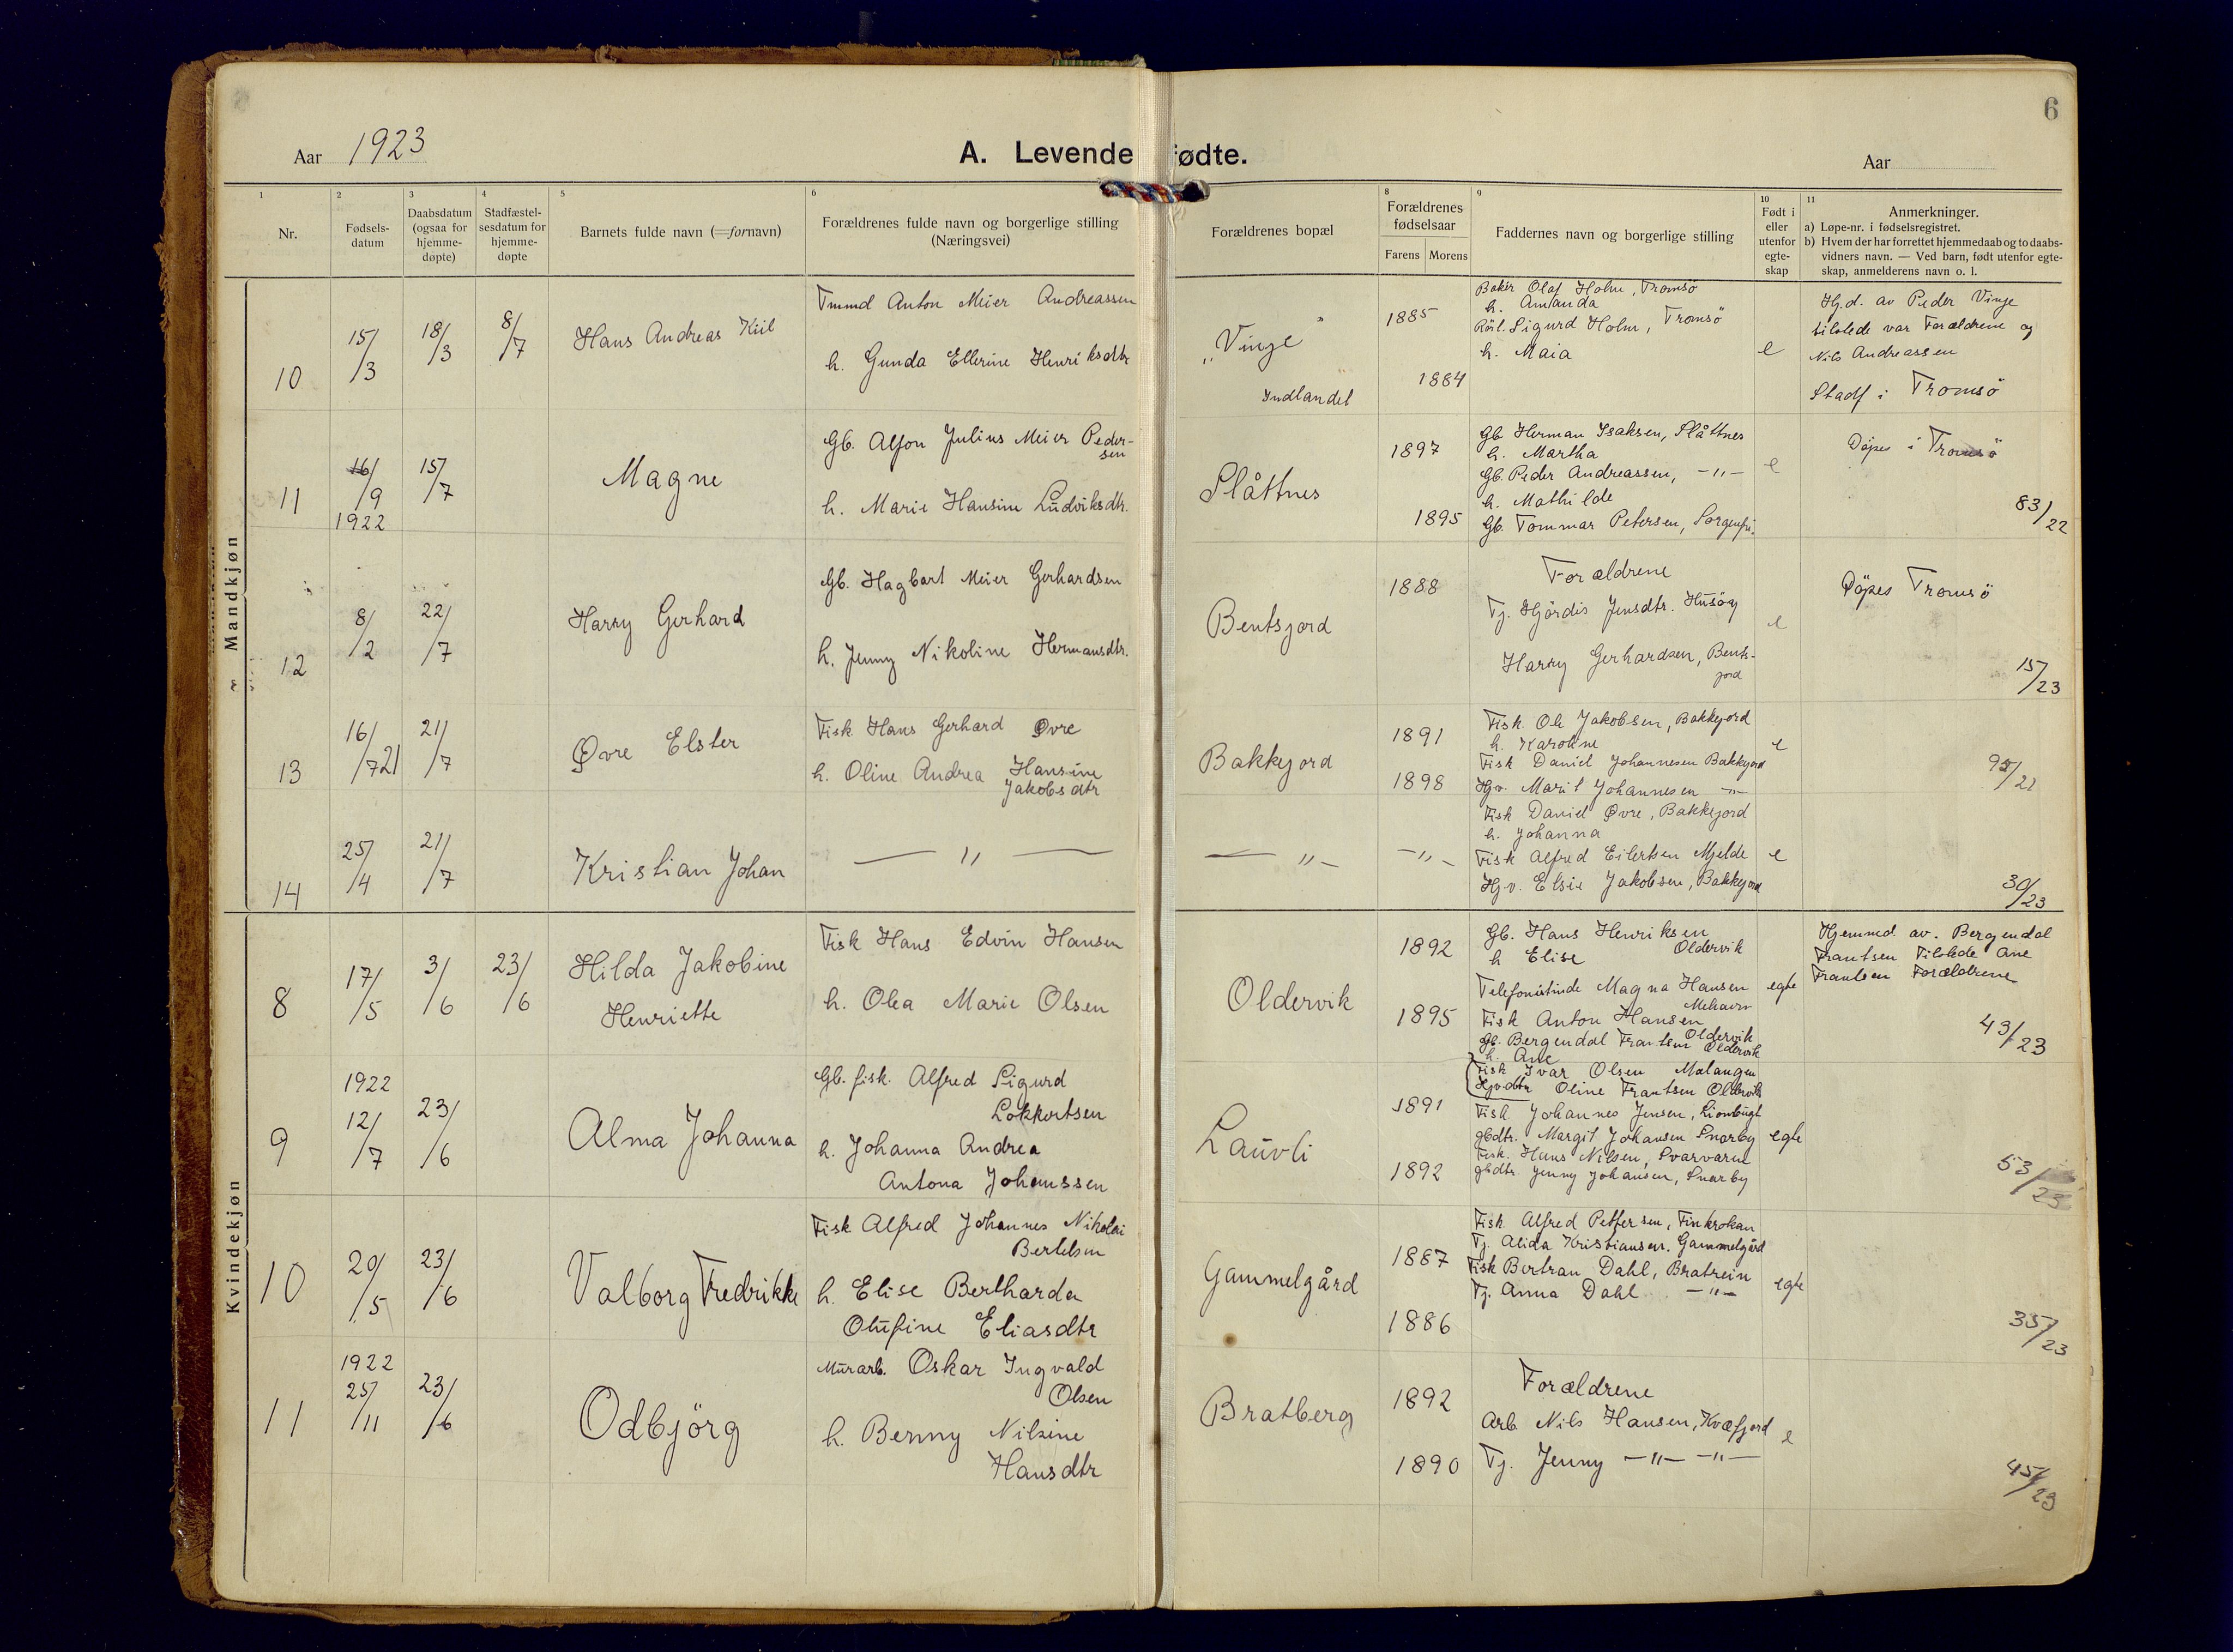 6
Aar 1923
A. Levende fødte.
Aar
1 2 3 4 5 6 8 9 10 11
Nr.
Fødsels-
datum
Daabsdatum
(ogsaa for
hjemme-
døpte)
Stadfæstel-
sesdatum for
hjemme-
døpte
Barnets fulde navn (=fornavn)
Forældrenes fulde navn og borgerlige stilling
(Næringsvei)
Forældrenes bopæl
Forældrenes
fødselsaar
Farens Morens
Faddernes navn og borgerlige stilling
Født i
eller
utenfor
egte-
skap
Anmerkninger.
a) Løpe-nr. i fødselsregistret.
b) Hvem der har forrettet hjemmedaab og to daabs-
vidners navn. — Ved barn, født utenfor egte-
skap, anmelderens navn o. l.
Mandkjøn
10
15/3
18/3
8/7
Hans Andreas Kiil
Anton Meier Andreassen
h. Gunda Ellerine Henriksdtr
"Vinje"
Indlandet
1885
1884
Baker Olaf Holm, Tromsö
h. Amanda
Sigurd Holm, Tromsö
h. Maia
e
Hj.d. av Peder Vinje
tilstede var Forældrene og
Nils Andreassen
Stadf i Tromsö
11
16/9
1922
15/7
Magne
Gb. Alfon Julius Meier Peder-
sen
h. Marie Hansine Ludviksdtr.
Slåttnes
1897
1895
Gb Herman Isaksen, Slåttnes
h. Martha
Gb. Peder Andreassen, -"-
h. Mathilde
Gb. Tommar Petersen, Sorgenfri.
e
Döpes i Tromsö
83/22
12
8/2
22/7
Harry Gerhard
Gb. Hagbart Meier Gerhardsen
h. Jenny Nikoline Hermansdtr.
Bentsjord
1888
Forældrene
Tj. Hjördis Jensdtr. Husöy
Harry Gerhardsen, Bents-
jord
e
Döpes Tromsö
15/23
13
16/7 21
21/7
Øvre Elster
Fisk Hans Gerhard Øvre
h. Oline Andrea Hansine
Jakobsdtr
Bakkejord
1891
1898
Fisk. Ole Jakobsen, Bakkejord
h. Karoline
Fisk Daniel Johannesen Bakkejord
Hj.v. Marit Johannesen -"-
e
95/21
14
25/4
21/7
Kristian Johan
— " —
— " —
-"-
Fisk Daniel Øvre, Bakkejord
h. Johanna
Fisk Alfred Eilertsen Mjelde
Hj.v. Elsie Jakobsen, Bakkejord
e
30/23
Kvindekjøn
8
17/5
3/6
23/6
Hilda Jakobine
Henriette
Fisk Hans Edvin Hansen
h. Olea Marie Olsen
Oldervik
1892
1895
Gb. Hans Henriksen
h Elise Oldervik
Telefonistinde Magna Hansen
Mehavn
Fisk Anton Hansen
Oldervik
Gb. Bergendal Frantsen Oldervik
h. Ane
Fisk Ivar Olsen Malangen
Hjv.dtr Oline Frantsen Oldervik
egte
Hjemmed. av. Bergendal
Frantsen Tilstede Ane
Frantsen Forældrene
43/23
9
1922
12/7
23/6
Alma Johanna
Gb. fisk. Alfred Sigurd
Lokkortsen
h. Johanna Andrea
Antona Johanssen
Lauvli
1891
1892
Fisk Johannes Jensen,
gbdtr. Margit Johansen Snarby
Fisk. Hans Nilsen, Svarvaren
gbdtr. Jenny Johansen, Snarby
egte
53/23
10
20/5
23/6
Valborg Fredrikke
Fisk Alfred Johannes Nikolai
Bertelsen
h. Elise Bertharda
Olufine Eliasdtr
Gammelgård
1887
1886
Fisk. Alfred Pettersen, Finkroken
Tj. Alida Kristiansen. Gammelgård
Fisk Bertran Dahl, Bratrein
Tj. Anna Dahl -"-
egte
35/23
11
1922
25/11
23/6
Odbjörg
Murarb. Oskar Ingvald
Olsen
h. Benny Nilsine
Hansdtr
Bratberg
1892
1890
Forældrene
Arb. Nils Hansen, Kvæfjord
Tj. Jenny -"- -"-
e
45/23